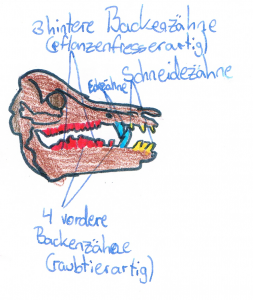 3 hintere Backenzähne
(pflanzenfresserartig)
Eckzähne
Schneidezähne
4 vordere
Backenzähne
(raubtierartig)